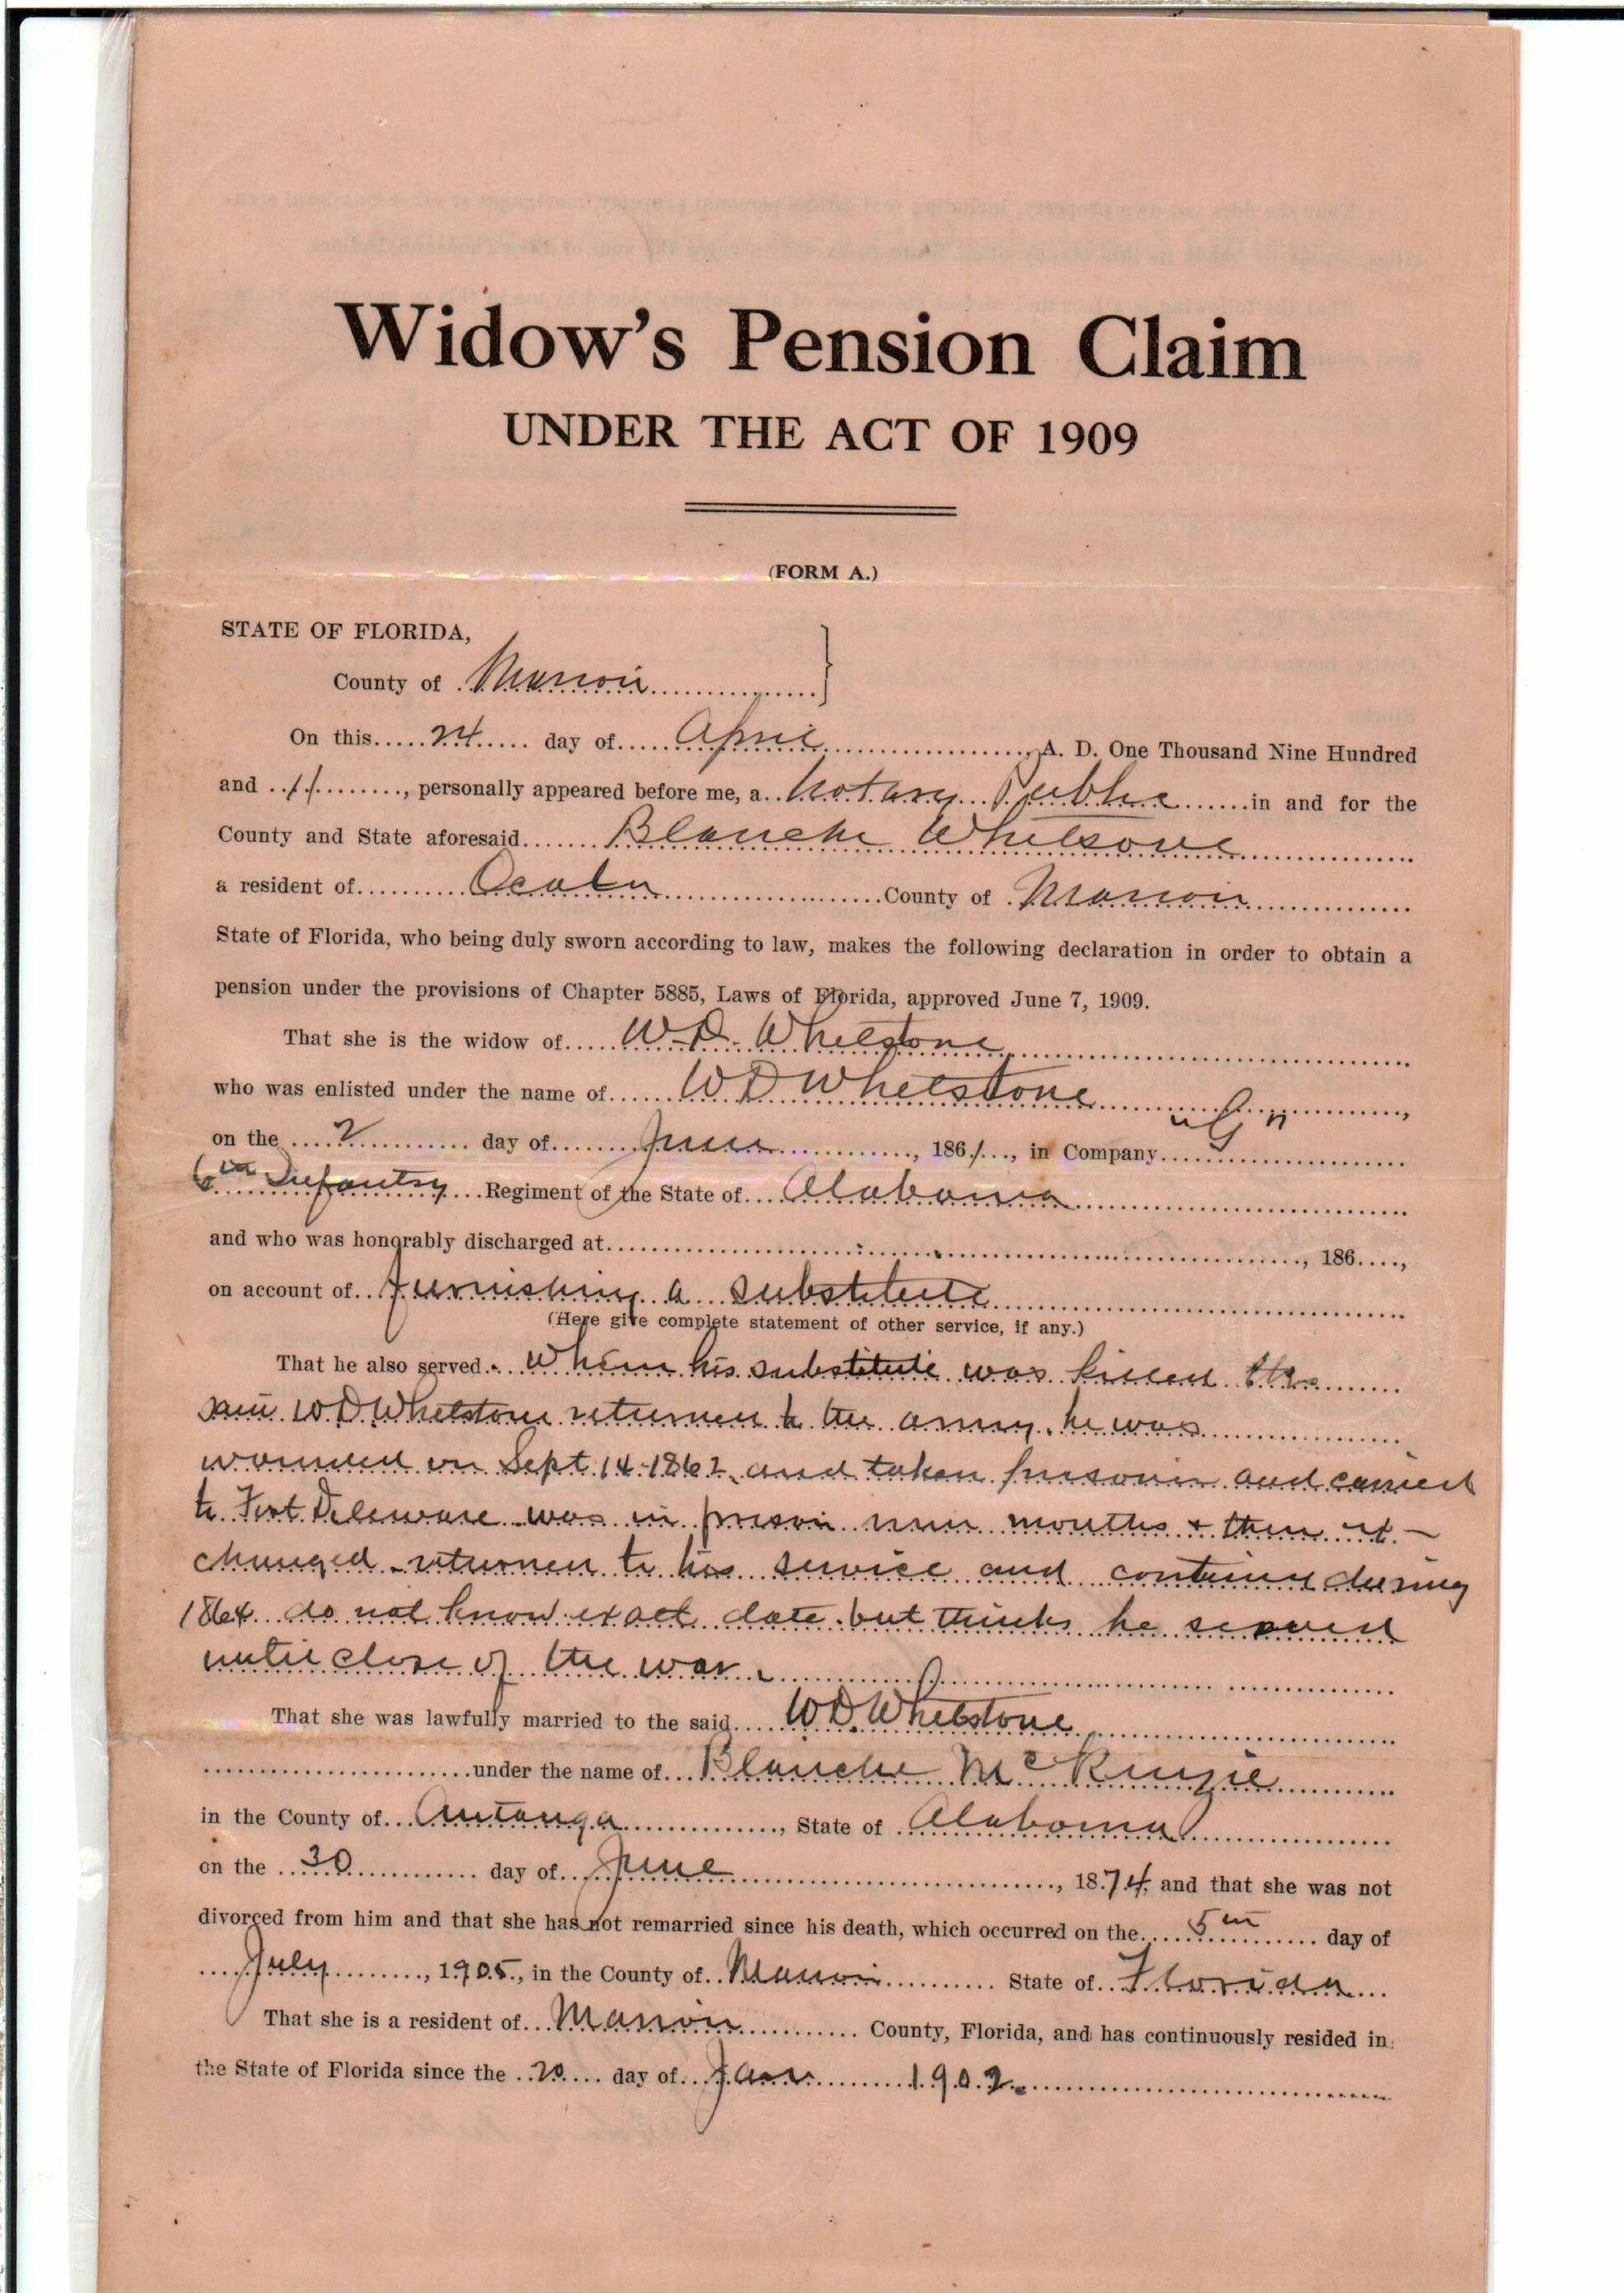 Widow's Pension Claim
UNDER THE ACT OF 1909
(FORM A.)
STATE OF FLORIDA,
County of Marion
On this 24 day of April, A. D. One Thousand Nine Hundred
and 11, personally appeared before me, a Notary Public in and for the
County and State aforesaid Blanche Whetsone
a resident of Ocala County of Marion
State of Florida, who being duly sworn according to law, makes the following declaration in order to obtain a
pension under the provisions of Chapter 5885, Laws of Florida, approved June 7, 1909.
That she is the widow of W. D. Whetstone
who was enlisted under the name of W D Whetstone,
on the 2 day of June, 1861, in Company "G"
6th Infantry Regiment of the State of Alabama
and who was honorably discharged at, 186,
on account of furnishing a substitute
(Here give complete statement of other service, if any.)
That he also served. When his substitute was killed the
said W D Whetstone returned to the army. he was
wounded on Sept 14-1862 and taken prisoner and carried
to Fort Deleware was in prison nine months + then ex-
changed returned to his service and continued during
1864 do not know exact date but thinks he served
until close of the war.
That she was lawfully married to the said W D. Whetstone
under the name of Blanche McKenzie
in the County of Autauga, State of Alabama
on the 30 day of June, 1874, and that she was not
divorced from him and that she has not remarried since his death, which occurred on the 5th day of
July, 1905, in the County of Marion State of Florida
That she is a resident of Marion County, Florida, and has continuously resided in
the State of Florida since the 20 day of Jan 1902.